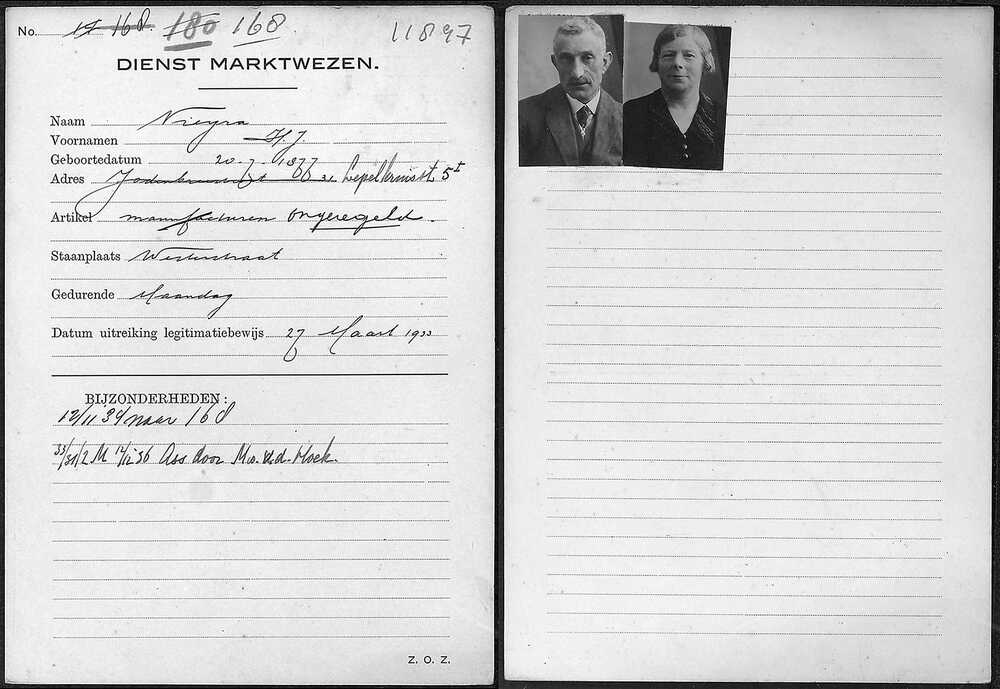 No. 17 168. 180 168. 11897
DIENST MARKTWEZEN.
Naam Vieyra
Voornamen H.J.
Geboortedatum 20-7-1877
Adres Jodenbreestraat 31 Lepelkruisst 5 I
Artikel manufacturen ongeregeld.
Staanplaats Westerstraat
Gedurende Maandag
Datum uitreiking legitimatiebewijs 27 Maart 1933
BIJZONDERHEDEN:
12/11 '34 naar 168
2 M 14/12 '36 Ass door Mw. v.d. Hoek.
Z. O. Z.